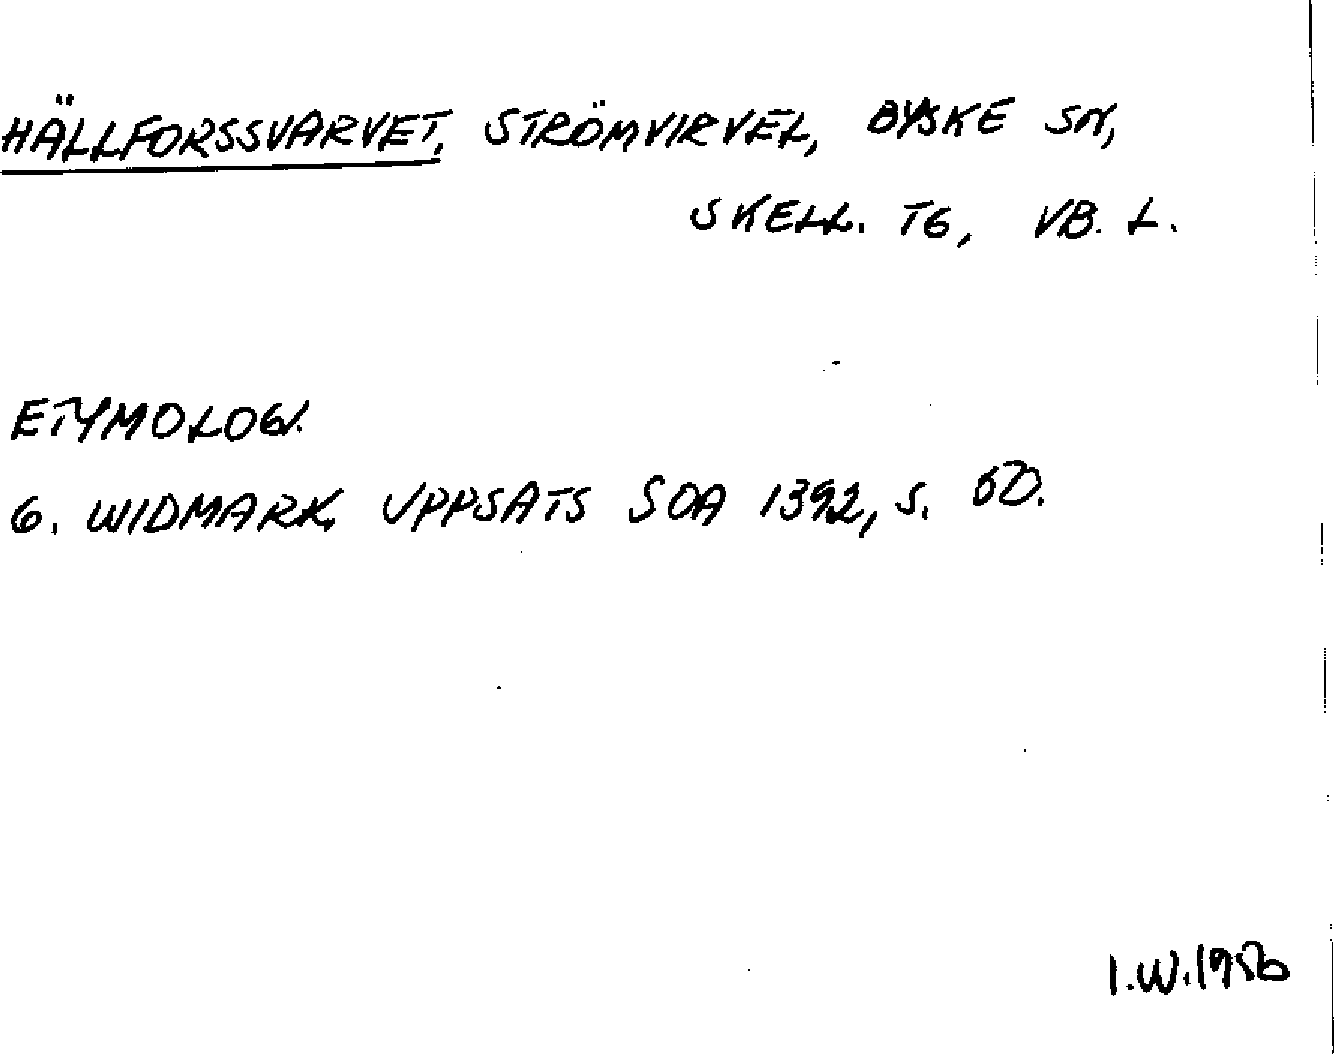 HÄLLFORSSVARVET, STRÖMVIRVEL, BYSKE SN,
SKELL. TG, VB. L.
ETYMOLOGI.
G. WIDMARK, UPPSATS SOA 1392, S.
I.W. 1956